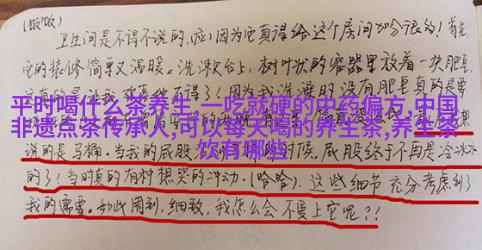 卫生间是不得不说的,啦!因为它真得给这个房间加分很多!首先,
它的装修简单又温暖。洗漱台上,树叶状的容器里放着一块肥皂,
因为我洗澡时没有用肥皂真的是
平时喝什么茶养生,一吃就硬的中药偏方,中国
非遗点茶传承人,可以每天喝的养生茶,养生茶
饮有哪些
说的是马桶。当我的屁股 时候,屁股终于不再是冷冰冰
的了!当时真的有种想哭的冲动。(哈哈)。这些细节充分考虑到了
我的需需。如此周到,细致,我怎么会不爱上它呢?!